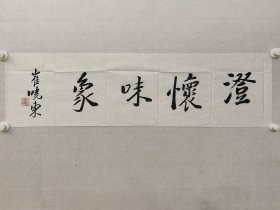 澄懷味象
崔曉東